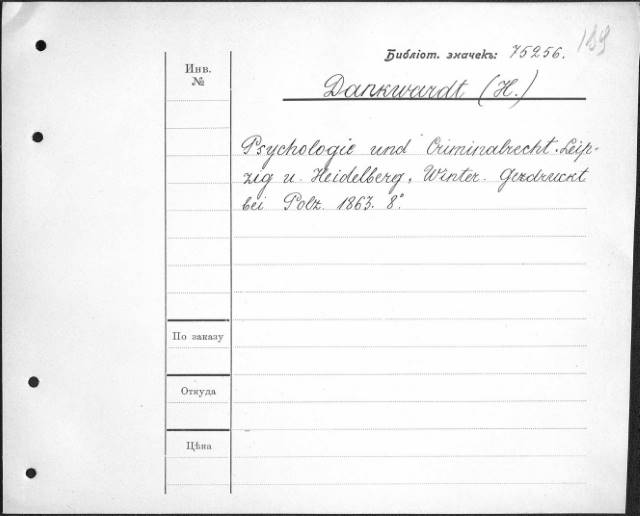 189
Библіот. значекъ: 75256.
Инв.
№
Dankwardt (H.)
Psychologie und Criminalrecht. Leip-
zig u. Heidelberg, Winter. Gedruckt
bei Polz. 1863. 8°.
По заказу
Откуда
Цѣна